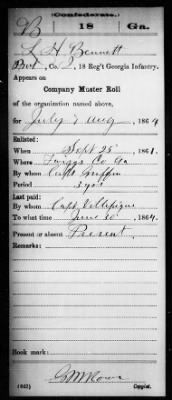 Confederate.
B 18 Ga.
H Bennett
Pvt, Co. 18 Reg't Georgia Infantry.
Appears on
Company Muster Roll
of the organization named above,
for July & Aug, 1864
Enlisted:
When Sept 25, 1861.
Where Twiggs Co Ga
By whom Capt Griffin
Period 3 yrs
Last paid:
By whom Capt. Villepigue
To what time June 10, 1864.
Present or absent Present.
Remarks:
Book mark:
(642) Copyist.